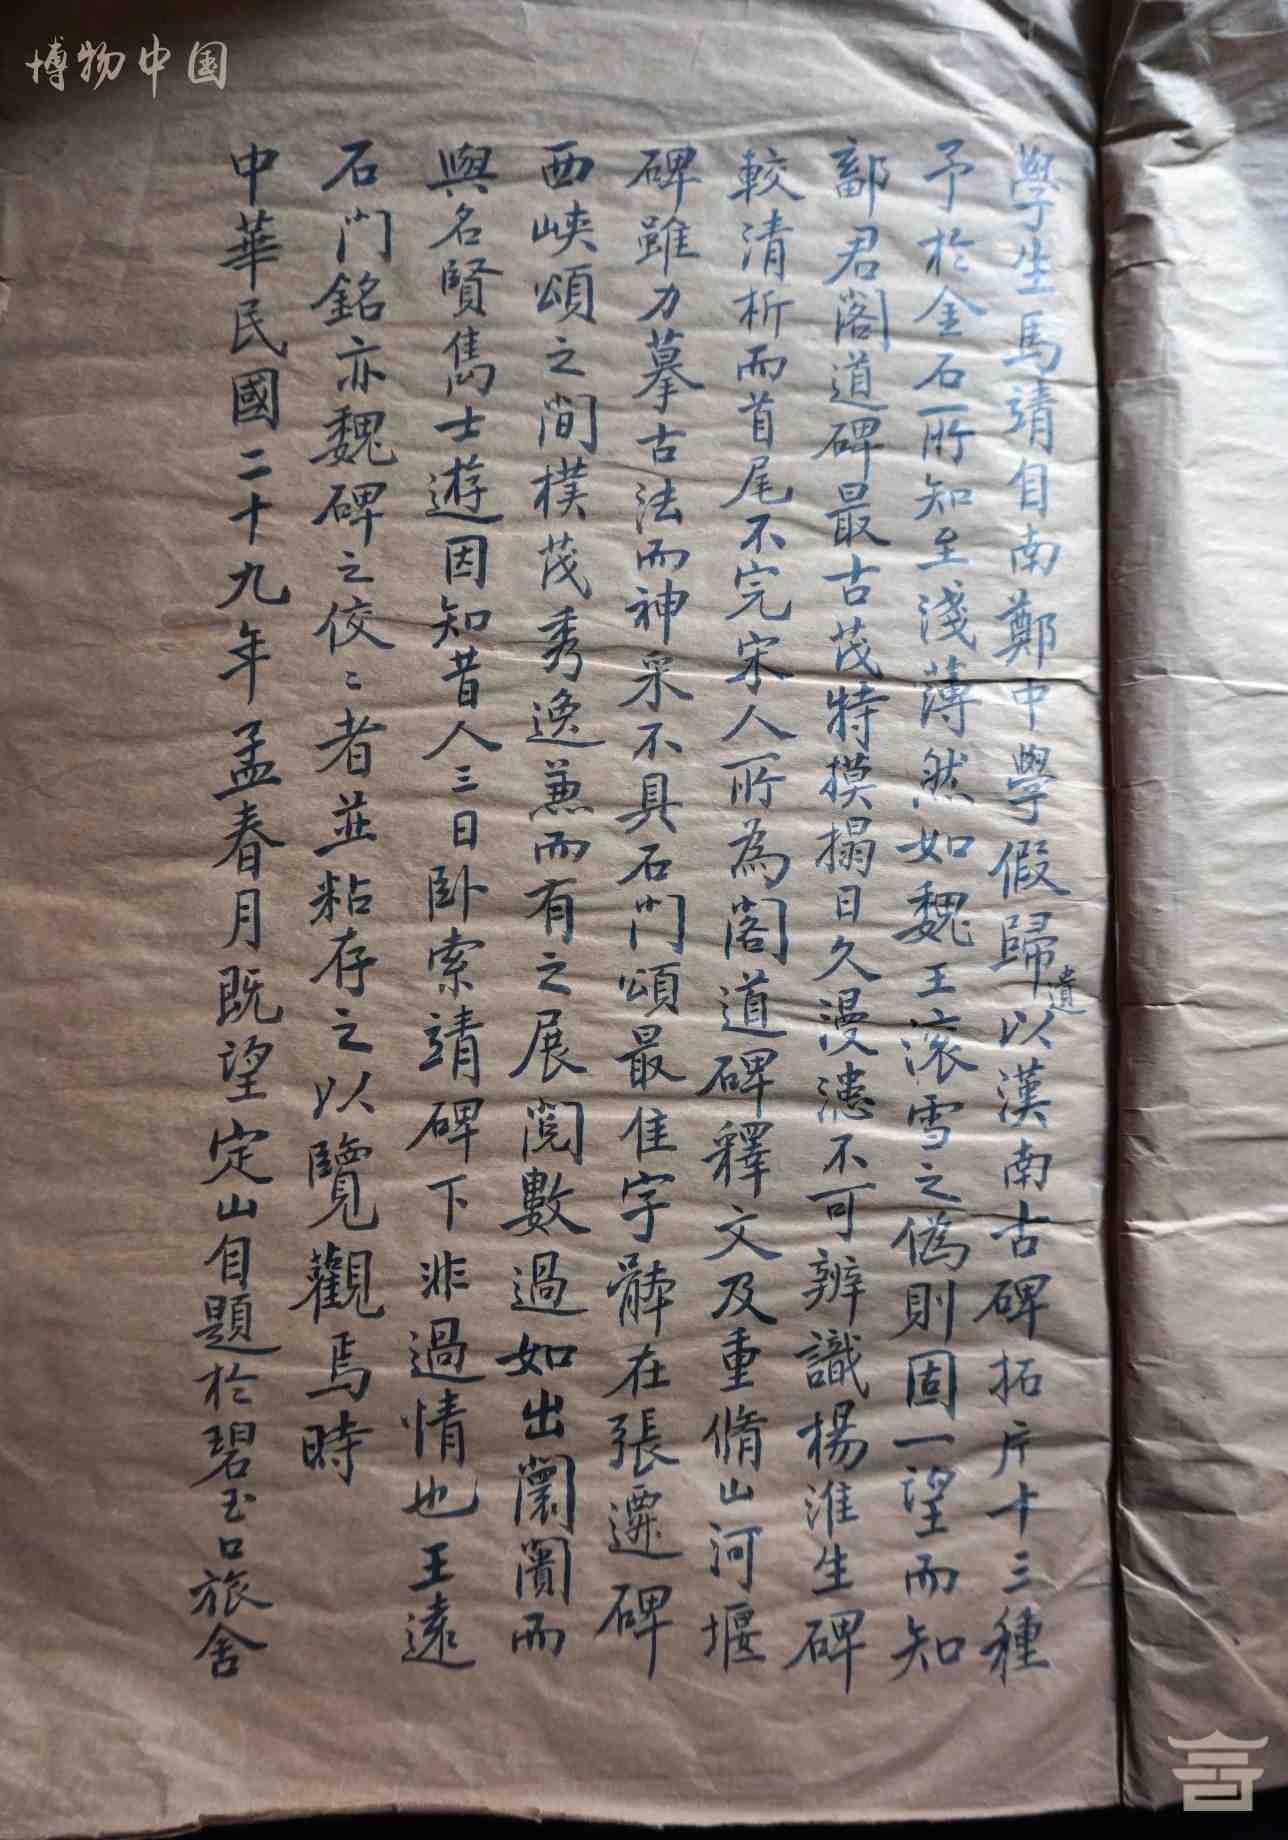 博物中国
學生馬靖自南鄭中學假歸遺以漢南古碑拓片十三種
予於金石所知至淺薄然如魏王滚雪之偽則固一望而知
鄐君閣道碑最古茂特摸搨日久漫漶不可辨識楊淮生碑
較清析而首尾不完宋人所為閣道碑釋文及重脩山河堰
碑雖力摹古法而神采不具石門頌最佳字體在張遷碑
西峽頌之間樸茂秀逸兼而有之展閱數過如出闤闠而
與名賢雋士遊因知昔人三日卧索靖碑下非過情也王遠
石門銘亦魏碑之佼〻者並粘存之以覽觀焉時
中華民國二十九年孟春月既望定山自題於碧玉口旅舍